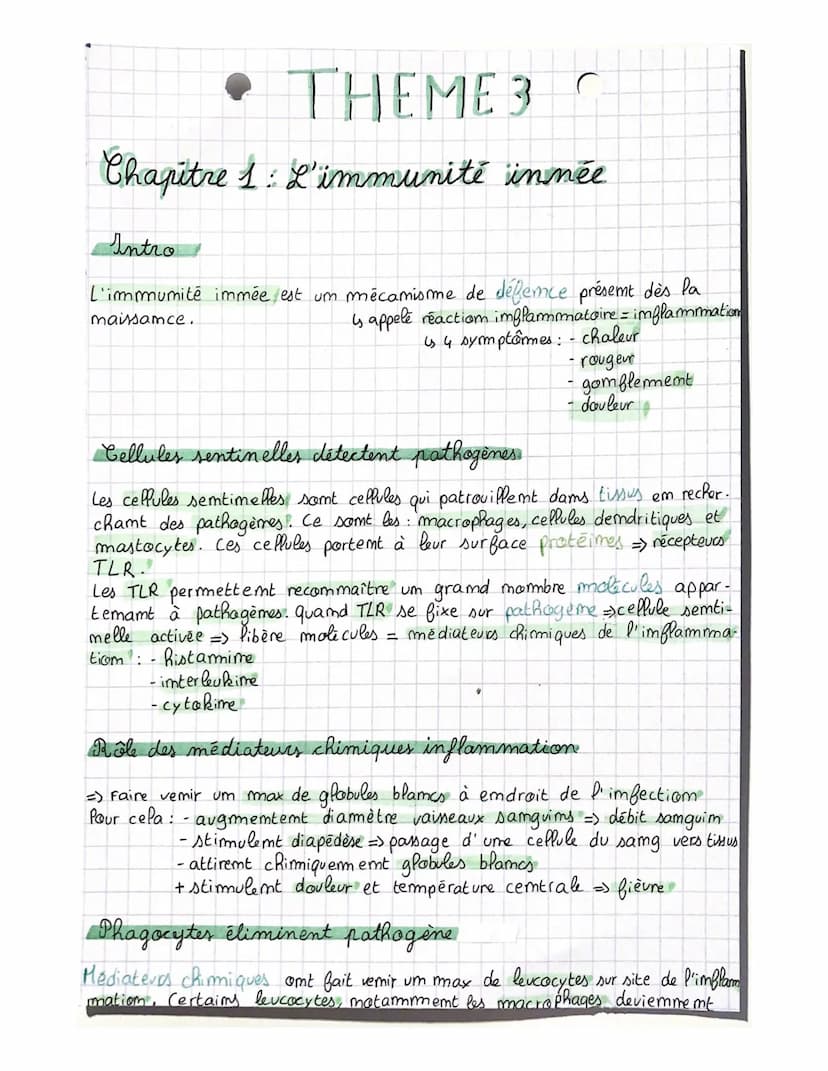 THEME 3
Chapitre 1 : L'immunité innée
Intro
L'immunité innée est un mécanisme de défence présent dès la
naissance. ↳ appelé réaction inflammatoire = inflammation
↳ 4 symptômes : - chaleur
- rougeur
- gonflement
- douleur
Cellules sentinelles détectent pathogènes
Les cellules sentinelles sont cellules qui patrouillent dans tissus en recher-
chant des pathogènes. Ce sont les : macrophages, cellules dendritiques et
mastocytes. Ces cellules portent à leur surface protéines => récepteurs
TLR.
Les TLR permettent reconnaître un grand nombre molécules appar-
tenant à pathogènes. Quand TLR se fixe sur pathogène => cellule senti-
nelle activée => libère molécules = médiateurs chimiques de l'inflamma-
tion : - histamine
- interleukine
- cytokine
Rôle des médiateurs chimiques inflammation
=> Faire venir un max de globules blancs à endroit de l'infection
Pour cela : - augmentent diamètre vaisseaux sanguins => débit sanguin
- stimulent diapédèse => passage d'une cellule du sang vers tissus
- attirent chimiquement globules blancs
+ stimulent douleur et température centrale => fièvre
Phagocytes éliminent pathogène
Médiateurs chimiques ont fait venir un max de leucocytes sur site de l'inflam
mation. Certains leucocytes, notamment les macrophages deviennent